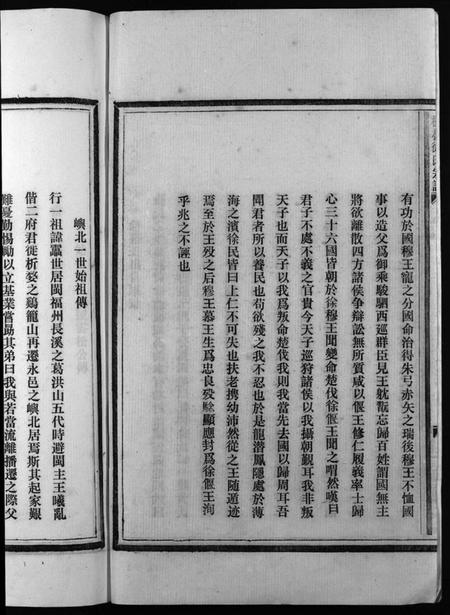 有功於國穆王寵之分國命治得朱弓赤矢之瑞後穆王不恤國
事以造父爲御乘駿駟西巡羣臣見王躭翫忘歸百姓謂國無主
將欲離散四方諸侯爭辯訟無所質咸以偃王修仁履義率士歸
心三十六國皆朝於徐穆王聞變命楚伐徐偃王聞之喟然嘆曰
君子不處不義之官貴今天子巡狩諸侯以我攝朝覲耳我非叛
天子也而天子以我爲叛命楚伐我則我當先去國以歸周耳吾
聞君者所以養民也苟欲殘之我不忍也於是龍潛鳳隱處於薄
海之濱徐民皆曰上仁不可失也扶老携幼沛然從之王随遁迹
焉至於王殁之后穆王慕王生爲忠良殁騐顯應封爲徐偃王洵
乎兆之不誣也
嶼北一世始祖傳
行一祖諱靐世居閩福州長溪之葛洪山五代時避閩主王曦亂
偕二府君徙析癸之鷄籠山再遷永邑之嶼北居焉斯其起家艱
難憂勤惕勵以立基業嘗勗其弟曰我與若當流離播遷之際父